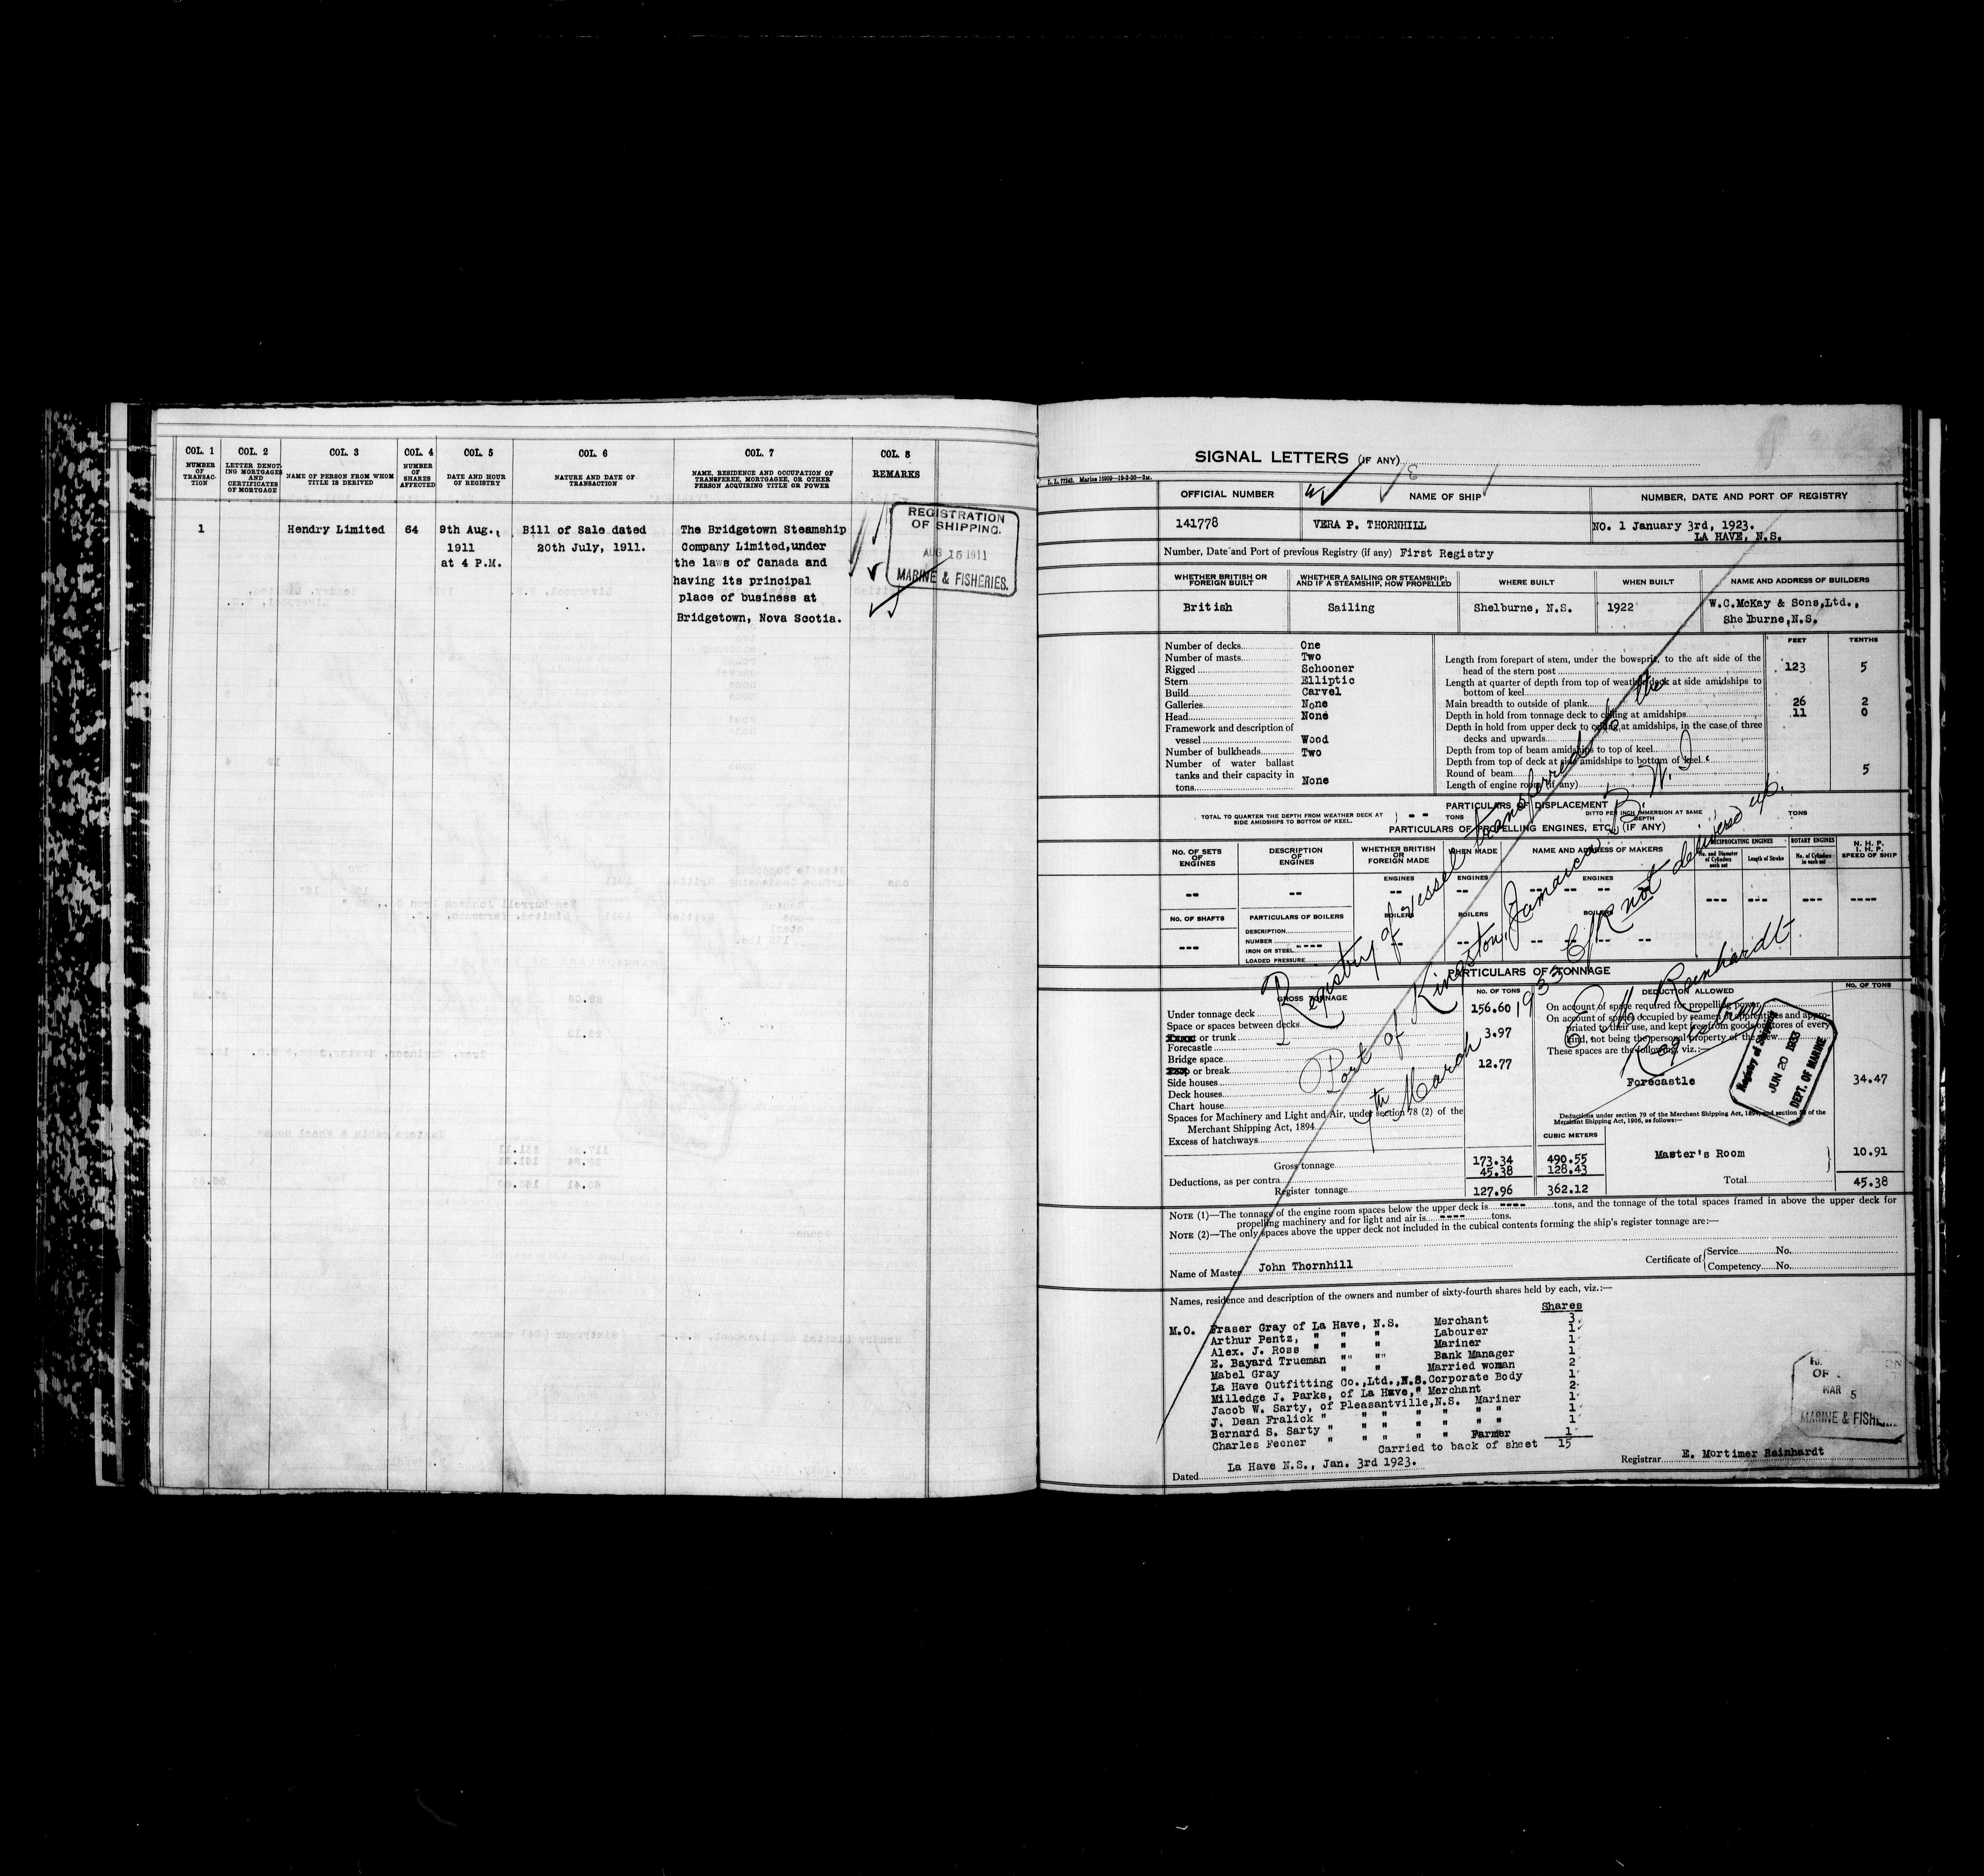 COL. 1
NUMBER OF TRANSAC-TION
COL. 2
LETTER DENOT-ING MORTGAGES AND CERTIFICATES OF MORTGAGE
COL. 3
NAME OF PERSON FROM WHOM TITLE IS DERIVED
COL. 4
NUMBER OF SHARES AFFECTED
COL. 5
DATE AND HOUR OF REGISTRY
COL. 6
NATURE AND DATE OF TRANSACTION
COL. 7
NAME, RESIDENCE AND OCCUPATION OF TRANSFEREE, MORTGAGEE, OR OTHER PERSON ACQUIRING TITLE OR POWER
COL. 8
REMARKS
1 Hendry Limited 64 9th Aug., Bill of Sale dated The Bridgetown Steamship
1911 20th July, 1911. Company Limited,under
at 4 P.M. the laws of Canada and
having its principal
place of business at
Bridgetown, Nova Scotia.
REGISTRATION
OF SHIPPING.
AUG 15 1911
MARINE & FISHERIES.
SIGNAL LETTERS (IF ANY)
L. L. 77343. Marine 10909—19-3-20—2M.
OFFICIAL NUMBER NAME OF SHIP NUMBER, DATE AND PORT OF REGISTRY
141778 VERA P. THORNHILL NO. 1 January 3rd, 1923.
LA HAVE, N.S.
Number, Date and Port of previous Registry (if any) First Registry
WHETHER BRITISH OR FOREIGN BUILT
WHETHER A SAILING OR STEAMSHIP; AND IF A STEAMSHIP, HOW PROPELLED
WHERE BUILT
WHEN BUILT
NAME AND ADDRESS OF BUILDERS
British Sailing Shelburne, N.S. 1922 W.C.McKay & Sons,Ltd.,
Shelburne,N.S.
Number of decks One
Number of masts Two
Rigged Schooner
Stern Elliptic
Build Carvel
Galleries None
Head None
Framework and description of
vessel Wood
Number of bulkheads Two
Number of water ballast
tanks and their capacity in
tons None
FEET TENTHS
Length from forepart of stem, under the bowsprit, to the aft side of the
head of the stern post 123 5
Length at quarter of depth from top of weather deck at side amidships to
bottom of keel
Main breadth to outside of plank 26 2
Depth in hold from tonnage deck to ceiling at amidships 11 0
Depth in hold from upper deck to ceiling at amidships, in the case of three
decks and upwards
Depth from top of beam amidships to top of keel
Depth from top of deck at side amidships to bottom of keel
Round of beam 5
Length of engine room (if any)
PARTICULARS OF DISPLACEMENT
TOTAL TO QUARTER THE DEPTH FROM WEATHER DECK AT SIDE AMIDSHIPS TO BOTTOM OF KEEL. -- TONS
DITTO PER INCH IMMERSION AT SAME DEPTH TONS
PARTICULARS OF PROPELLING ENGINES, ETC. (IF ANY)
No. OF SETS OF ENGINES
DESCRIPTION OF ENGINES
WHETHER BRITISH OR FOREIGN MADE
WHEN MADE
NAME AND ADDRESS OF MAKERS
RECIPROCATING ENGINES
No. and Diameter of Cylinders each set
Length of Stroke
ROTARY ENGINES
No. of Cylinders in each set
N. H. P.
I. H. P.
SPEED OF SHIP
ENGINES ENGINES ENGINES
-- -- -- -- -- -- -- -- --- --- --- ----
NO. OF SHAFTS PARTICULARS OF BOILERS BOILERS BOILERS BOILERS
DESCRIPTION
NUMBER
IRON OR STEEL ----
LOADED PRESSURE
--- -- -- -- -- -- --
Registry of vessel transferred to the
Port of Kingston, Jamaica, B.W.I
7th March 1933 C/R not delivered up.
E. M. Reinhardt
Registrar
Registry of Shipping
JUN 20 1933
DEPT. OF MARINE
PARTICULARS OF TONNAGE
GROSS TONNAGE No. OF TONS
Under tonnage deck 156.60
Space or spaces between decks
or trunk 3.97
Forecastle
Bridge space
Poop or break 12.77
Side houses
Deck houses
Chart house
Spaces for Machinery and Light and Air, under section 78 (2) of the
Merchant Shipping Act, 1894
Excess of hatchways
CUBIC METERS
Gross tonnage 173.34 490.55
Deductions, as per contra 45.38 128.43
Register tonnage 127.96 362.12
DEDUCTION ALLOWED No. OF TONS
On account of space required for propelling power
On account of spaces occupied by seamen or apprentices and appro-
priated to their use, and kept free from goods or stores of every
kind, not being the personal property of the crew
These spaces are the following, viz.:—
Forecastle 34.47
Deductions under section 79 of the Merchant Shipping Act, 1894, and section 54 of the
Merchant Shipping Act, 1906, as follows:—
Master's Room 10.91
Total 45.38
NOTE (1)—The tonnage of the engine room spaces below the upper deck is ---- tons, and the tonnage of the total spaces framed in above the upper deck for
propelling machinery and for light and air is ---- tons.
NOTE (2)—The only spaces above the upper deck not included in the cubical contents forming the ship's register tonnage are:—
Name of Master John Thornhill
Certificate of Service No.
Competency No.
Names, residence and description of the owners and number of sixty-fourth shares held by each, viz.:—
Shares
M.O. Fraser Gray of La Have, N.S. Merchant 3
Arthur Pentz, " " " Labourer 1
Alex. J. Ross " " " Mariner 1
E. Bayard Trueman " " Bank Manager 1
Mabel Gray " " Married woman 2
La Have Outfitting Co.,Ltd.,N.S. Corporate Body 1
Milledge J. Parks, of La Have," Merchant 2
Jacob W. Sarty, of Pleasantville,N.S. Mariner 1
J. Dean Fralick " " " " " " 1
Bernard S. Sarty " " " " " " 1
Charles Feener " " " " " Farmer 1
Carried to back of sheet 15
Dated La Have N.S., Jan. 3rd 1923.
Registrar E. Mortimer Reinhardt
MAR 5
MARINE & FISH